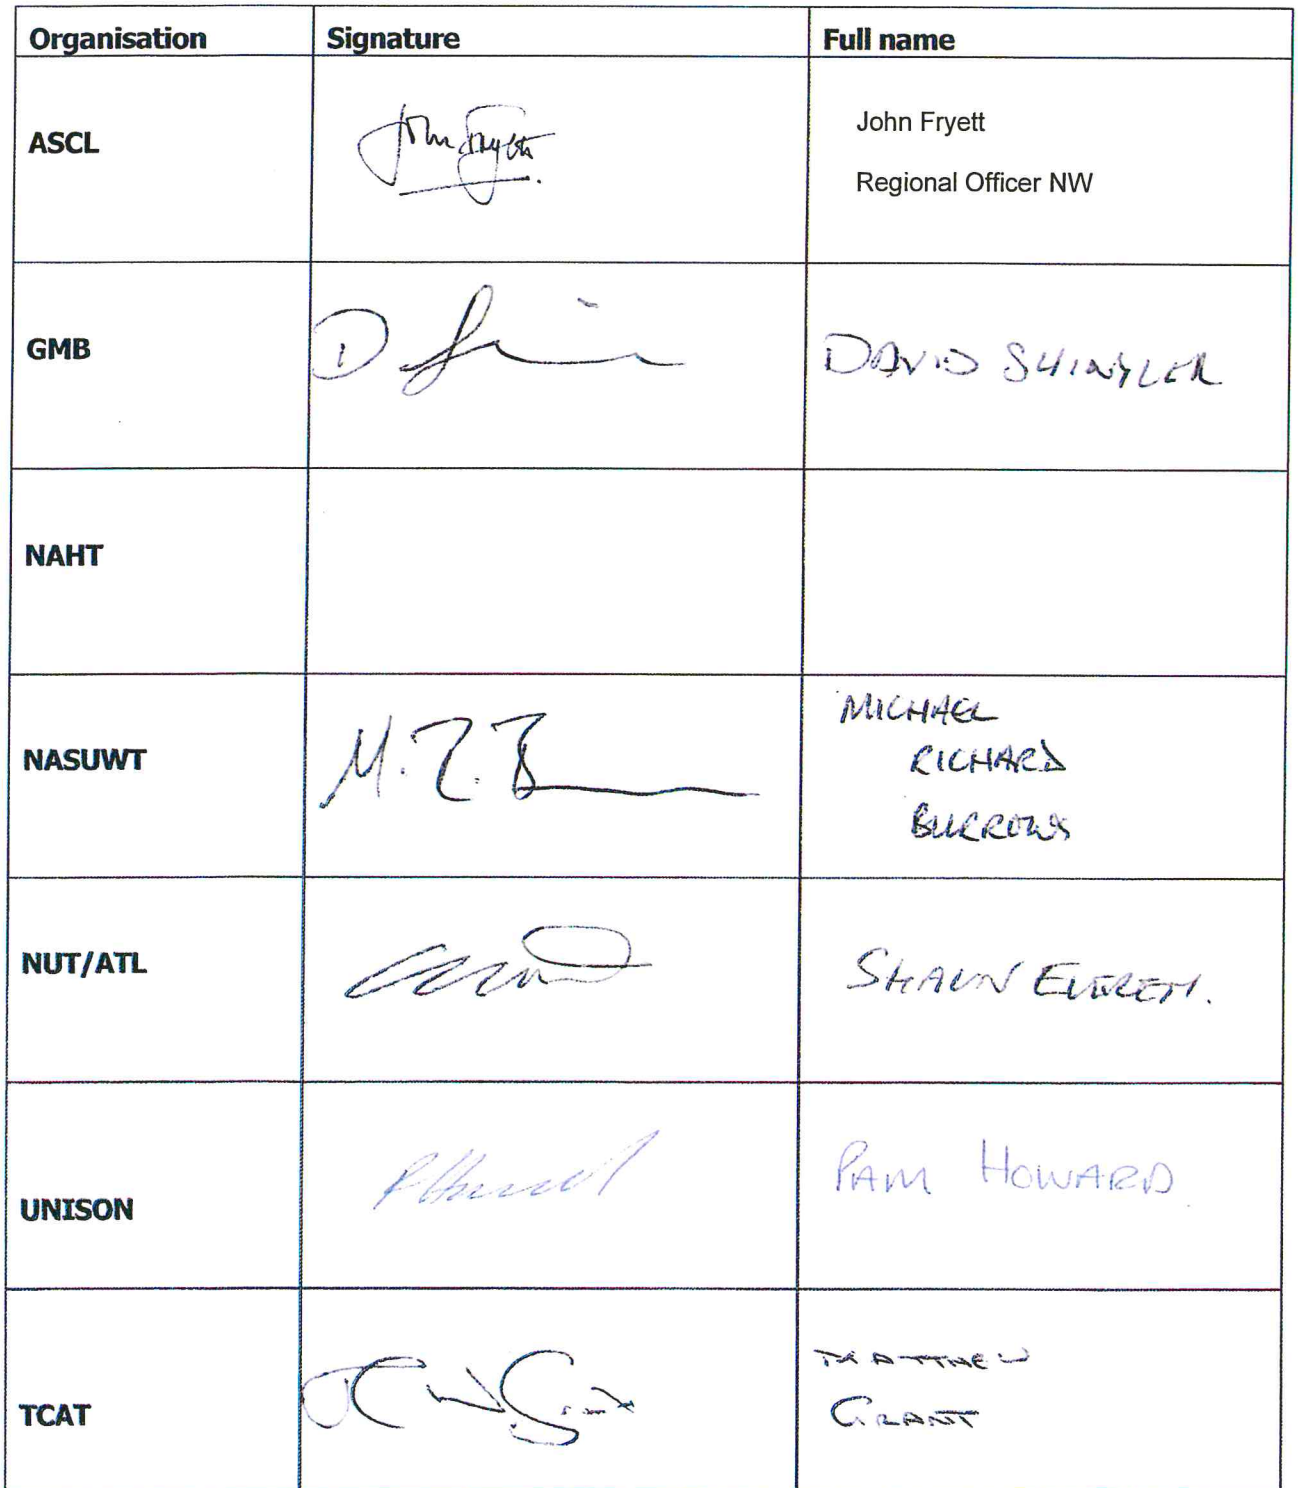 Organisation Signature Full name
ASCL John Fryett John Fryett
Regional Officer NW
GMB DAVID SHINDLER
NAHT
NASUWT M. R. B MICHAEL
RICHARD
BURROWS
NUT/ATL SHAUN EVERETT.
UNISON PHoward PAM HOWARD
TCAT MATTHEW
GRANT